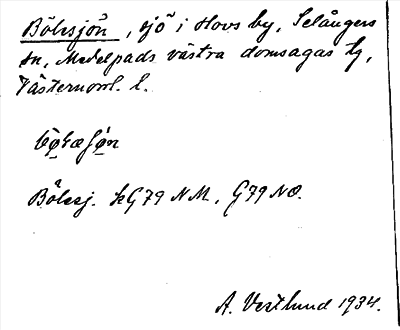 Bölessjön, sjö i Hovs by, Selångers
sn, Medelpads västra domsagas tg,
Västernorrl. l.
Bölesj. SeG79 NM, G79 NO.
A. Vestlund 1934.